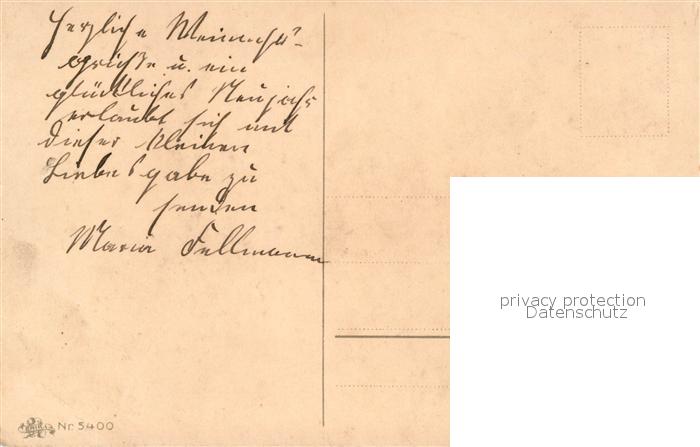 Herzliche Weinachts-
grüße u. ein
glückliches Neujahr
erlaubt sich mit
dieser kleinen
Liebesgabe zu
senden
Maria Fellmann
privacy protection
Datenschutz
Nr. 5400